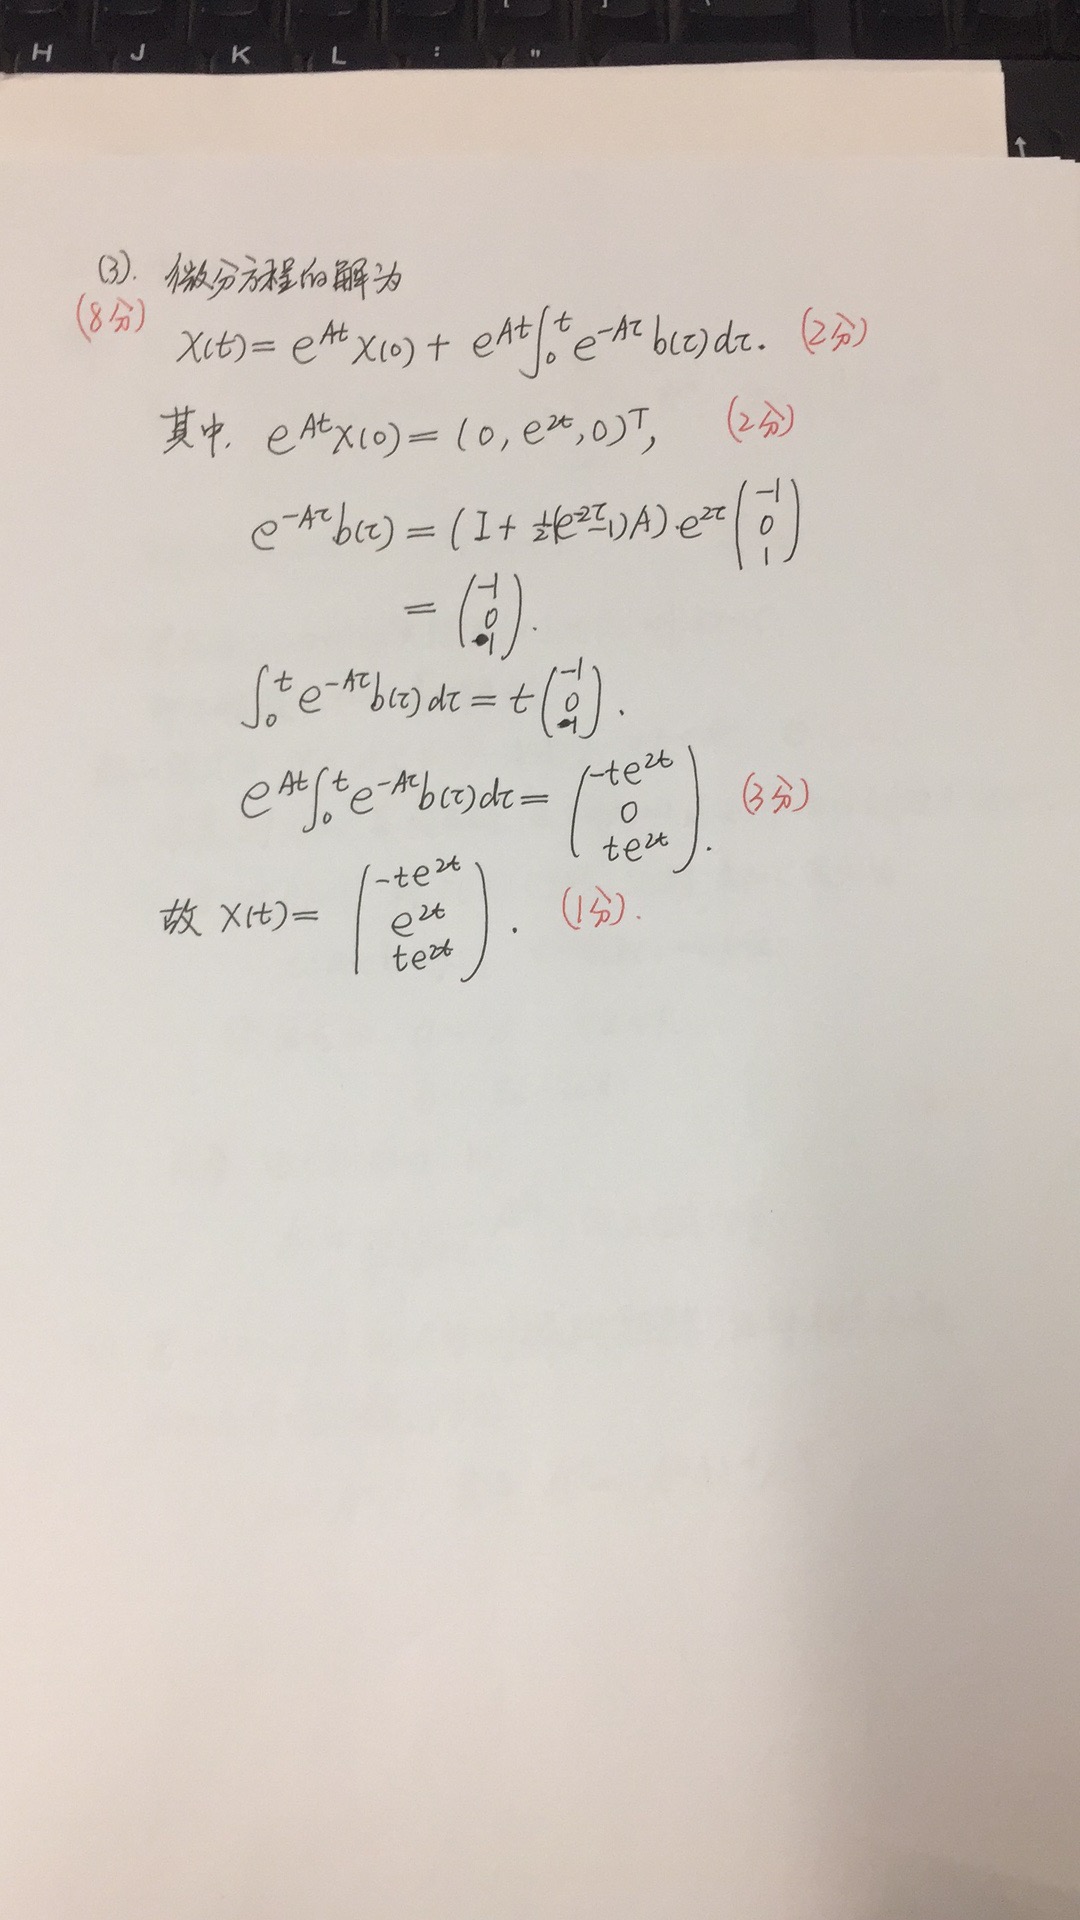 H J K L : "
(3). 微分方程的解为
(8分)
X(t) = e^{At} X(0) + e^{At} ∫_0^t e^{-Aτ} b(τ) dτ. (2分)
其中, e^{At} X(0) = (0, e^{2t}, 0)^T, (2分)
e^{-Aτ} b(τ) = (I + ½(e^{-2τ}-1)A) · e^{2τ} (-1 0 1)
= (-1 0 1).
∫_0^t e^{-Aτ} b(τ) dτ = t (-1 0 1).
e^{At} ∫_0^t e^{-Aτ} b(τ) dτ = (-te^{2t} 0 te^{2t}). (3分)
故 X(t) = (-te^{2t} e^{2t} te^{2t}). (1分).